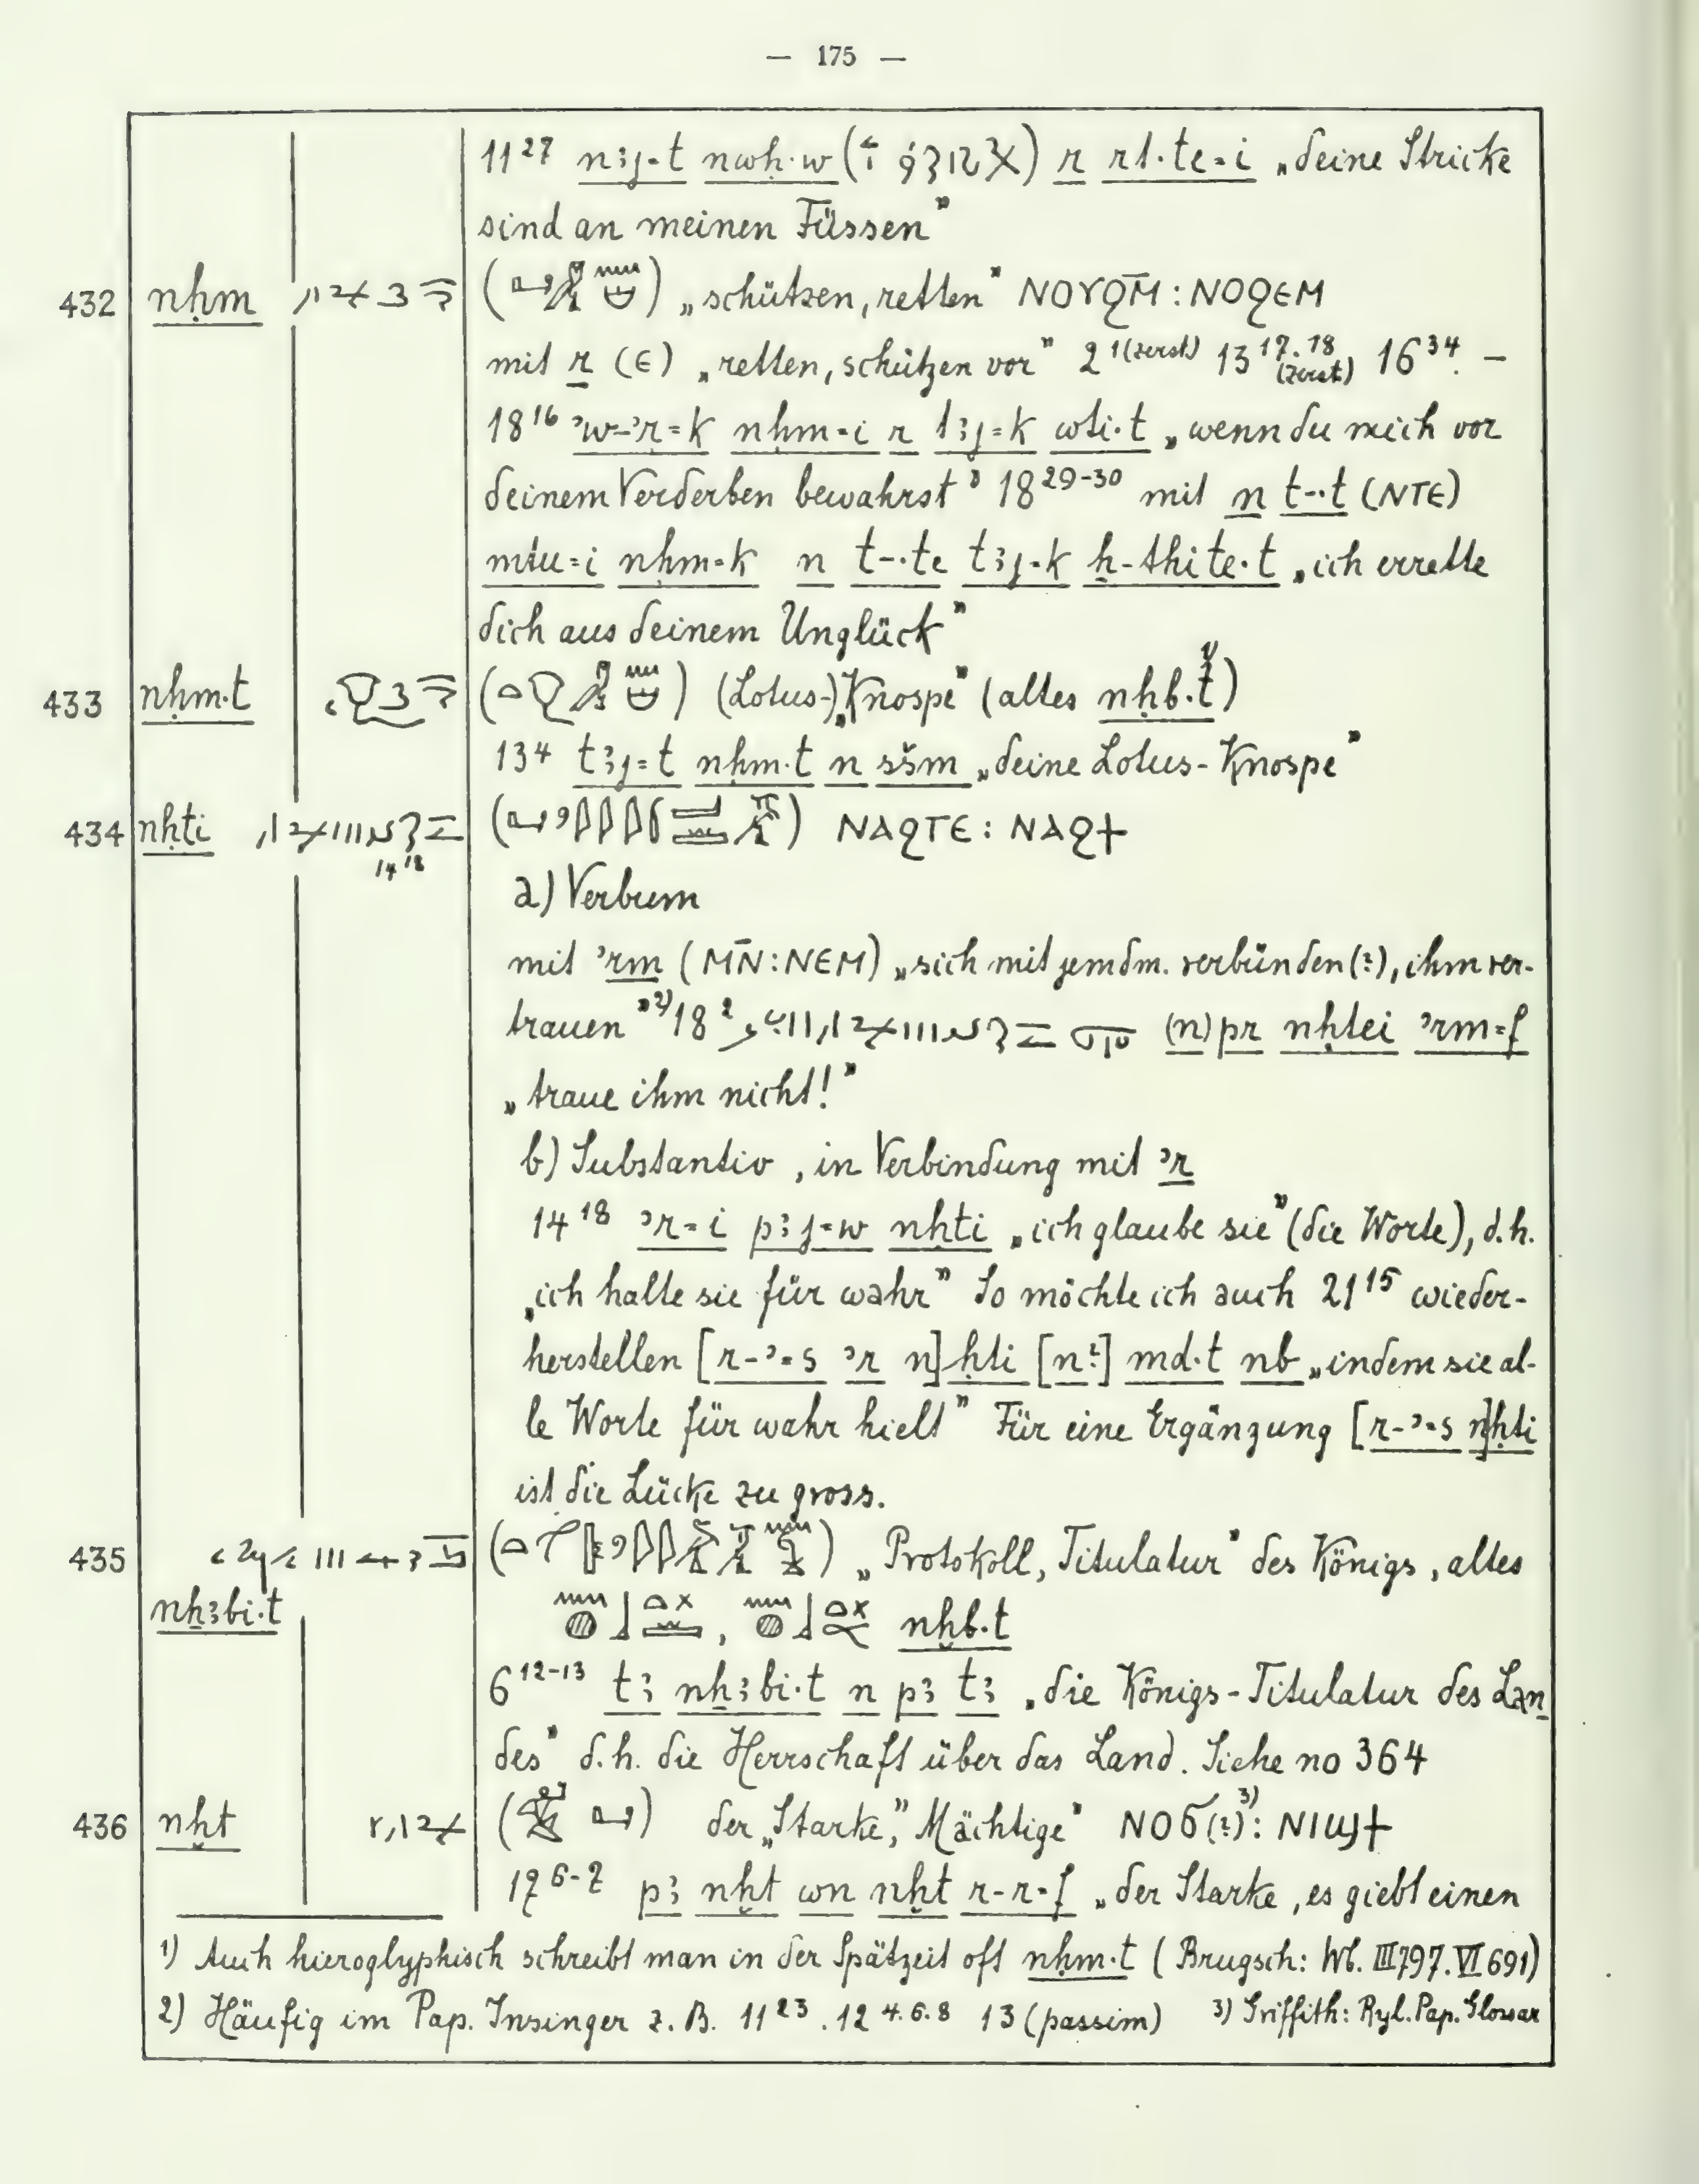 — 175 —
11²⁷ nꜣj=t nwḥ·w ( ) r rt·te=i „deine Stricke
sind an meinen Füssen"
432 nḥm ( ) „schützen, retten" ⲚⲞⲨϨⲘ̄ : ⲚⲞϨⲈⲘ
mit r (ⲉ) „retten, schützen vor" 2¹⁽ᶻᵉʳˢᵗ⁾ 13¹⁷·¹⁸ (zerst.) 16³⁴. –
18¹⁶ ʾw-ʾr=k nḥm=i r tꜣj=k wti·t „wenn du mich vor
deinem Verderben bewahrst" 18²⁹⁻³⁰ mit n t-·t (ⲚⲦⲈ)
mtu=i nḥm=k n t-·te tꜣj=k ẖ-thite·t „ich errette
dich aus deinem Unglück"
433 nḥm·t ( ) (Lotus-)„Knospe" (altes nḥb·t ¹⁾)
13⁴ tꜣj=t nḥm·t n sšm „deine Lotus-Knospe"
434 nḥti 14¹⁸ ( ) ⲚⲀϨⲦⲈ : ⲚⲀϨϮ
a) Verbum
mit ʾrm (ⲘN̄ : ⲚⲈⲘ) „sich mit jemdm. verbünden(?), ihm ver-
trauen" ²⁾ 18² (n) pr nḥtei ʾrm=f
„traue ihm nicht!"
b) Substantiv, in Verbindung mit ʾr
14¹⁸ ʾr=i pꜣj=w nḥti „ich glaube sie" (die Worte), d.h.
„ich halte sie für wahr" So möchte ich auch 21¹⁵ wieder-
herstellen [r-ʾ=s ʾr n]ḥti [n?] md·t nb „indem sie al-
le Worte für wahr hielt" Für eine Ergänzung [r-ʾ=s n]ḥti
ist die Lücke zu gross.
435 ( ) „Protokoll, Titulatur" des Königs, altes
nẖꜣbi·t , nḫb·t
6¹²⁻¹³ tꜣ nẖꜣbi·t n pꜣ tꜣ „die Königs-Titulatur des Lan
des" d.h. die Herrschaft über das Land. Siehe no 364
436 nḫt ( ) der „Starke", „Mächtige" ⲚⲞϬ(?)³⁾ : ⲚⲒϢϮ
17⁶⁻⁷ pꜣ nḫt wn nḫt r-r=f „der Starke, es giebt einen
1) Auch hieroglyphisch schreibt man in der Spätzeit oft nḥm·t (Brugsch: Wb. III 797. VI 691)
2) Häufig im Pap. Insinger z. B. 11²³. 12⁴·⁶·⁸ 13 (passim) 3) Griffith: Ryl. Pap. Glossar